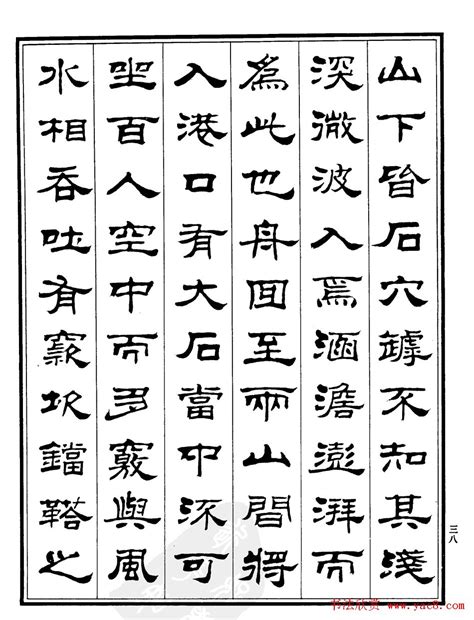 山下皆石穴罅不知其淺
深微波入焉涵澹澎湃而
爲此也舟回至兩山間將
入港口有大石當中流可
坐百人空中而多竅與風
水相吞吐有窾坎鏜鞳之
三八
书法欣赏 www.yac8.com